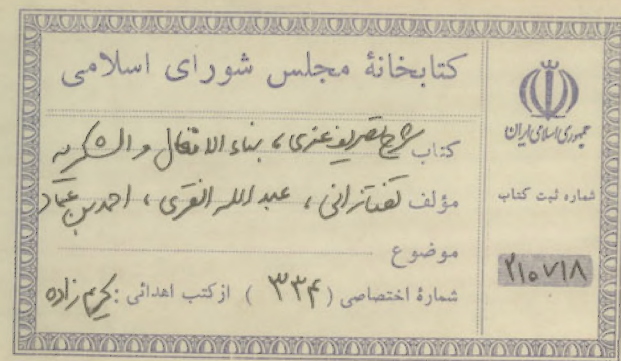 کتابخانهٔ مجلس شورای اسلامی
کتاب شرح تصریف عزی، بناء الافعال و الشکریه
مؤلف تفتازانی، عبدالله القری، احمد بن عماد
موضوع
شمارهٔ اختصاصی ( ۳۳۴ ) از کتب اهدائی : کریم زاده
جمهوری اسلامی ایران
شماره ثبت کتاب
۲۱۰۷۱۸